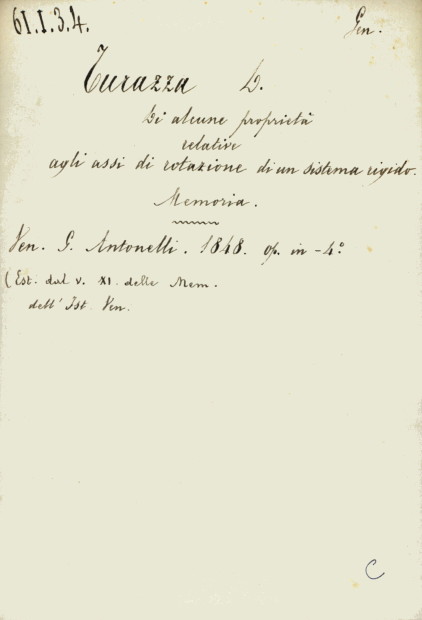 61.I.3.4.
Gen.
Turazza D.
Di alcune proprietà
relative
agli assi di rotazione di un sistema rigido.
Memoria.
Ven. G. Antonelli. 1868. op. in-4°
(Est. dal v. XI. delle Mem.
dell' Ist. Ven.
C